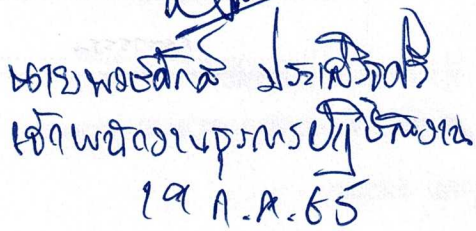 นายพงษ์ศักดิ์ ประเสริฐศรี
เจ้าพนักงานธุรการปฏิบัติงาน
19 ก.ค. 65